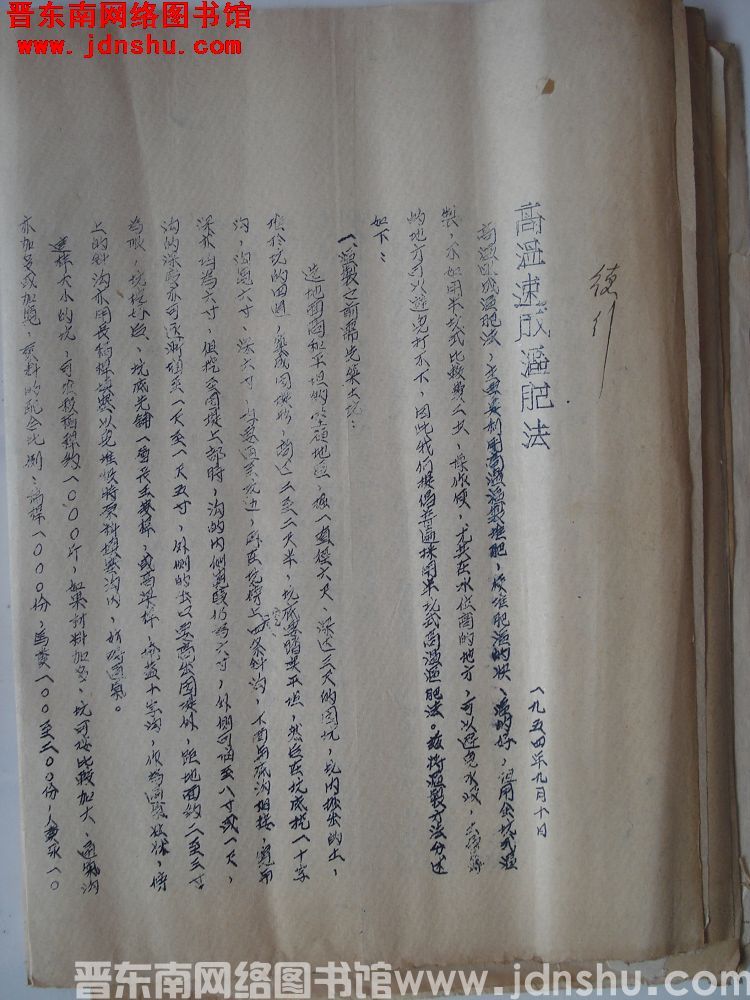 晋东南网络图书馆
www.jdnshu.com
德行
高温速成沤肥法
一九五四年九月十日
高温速成沤肥法，主要是利用高温沤制堆肥，使堆肥沤的快，沤的好，但用全坑式沤
製，不如用半坑式比较费工少，操作便，尤其在水位高的地方，可以避免水浸，
的地方可以避免打不下，因此我们提倡普遍採用半坑式高温沤肥法。兹将沤製方法分述
如下：
一、沤製之前需先築土坑：
选地面高和平坦的坚硬地区，挖一直径六尺，深达三尺的圆坑，坑内挖出的土，
堆於坑的四周，築成圆堤形，高达二至二尺半，坑底要踏实平坦，然后在坑底挖一十字
沟，沟宽六寸，深六寸，直通至坑边，再在坑塝上四条斜沟，下面与底沟相接，宽和
深亦均为六寸，但挖至圆堤上部時，沟的内侧宽度仍为六寸，外侧可宽至八寸或一尺，
沟的深度亦可逐渐增至一尺至一尺五寸，外侧的出口要高出圆堤外，距地面约二至三寸
为限，坑挖好后，坑底先铺一层长玉麦桿，或高粱桿，掩盖十字沟，作为通气
上的斜沟亦用长稍桿填塞以免堆积時原料填塞沟内，妨碍通气。
这样大小的坑，可容较稍桿约一〇〇〇斤，如果材料加多，坑可按比较加大，通气沟
亦加多或加宽，原料的配合比例：桿一〇〇〇份，馬糞一〇〇至二〇〇份，人糞尿一〇
晋东南网络图书馆www.jdnshu.com